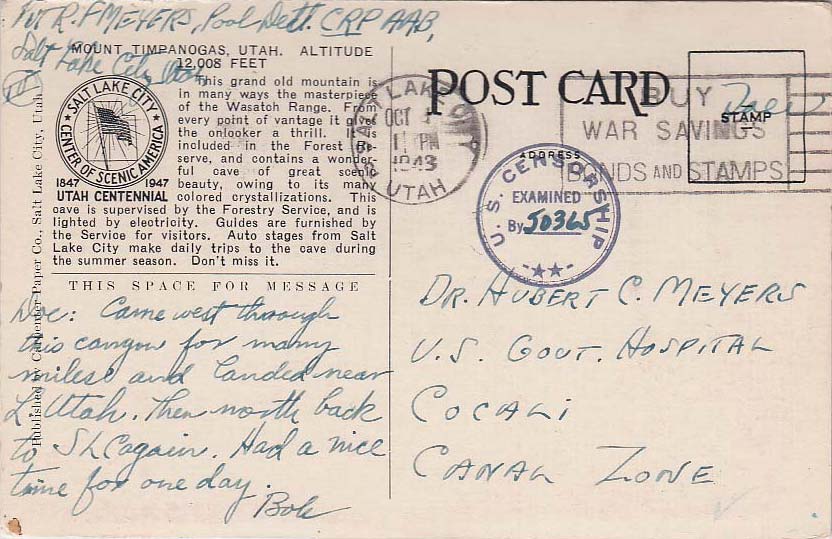 Pvt R.F MEYERS, Pool Dett. CRP AAB,
Salt Lake City Utah
MOUNT TIMPANOGAS, UTAH. ALTITUDE
12,008 FEET
This grand old mountain is
in many ways the masterpiece
of the Wasatch Range. From
every point of vantage it gives
the onlooker a thrill. It is
included in the Forest Re-
serve, and contains a wonder-
ful cave of great scenic
beauty, owing to its many
colored crystallizations. This
cave is supervised by the Forestry Service, and is
lighted by electricity. Guides are furnished by
the Service for visitors. Auto stages from Salt
Lake City make daily trips to the cave during
the summer season. Don't miss it.
SALT LAKE CITY
CENTER OF SCENIC AMERICA
1847 1947
UTAH CENTENNIAL
Published by Carpenter Paper Co., Salt Lake City, Utah
THIS SPACE FOR MESSAGE
Doc: Came west through
this canyon for many
miles and landed near
L. Utah. Then north back
to SLC again. Had a nice
time for one day.
Bob
POST CARD
SALT LAKE CITY
OCT
1 PM
1943
UTAH
BUY
WAR SAVINGS
BONDS AND STAMPS
STAMP
ADDRESS
U.S. CENSORSHIP
EXAMINED
By 50365
DR. HUBERT C. MEYERS
U.S. GOVT. HOSPITAL
COCALI
CANAL ZONE